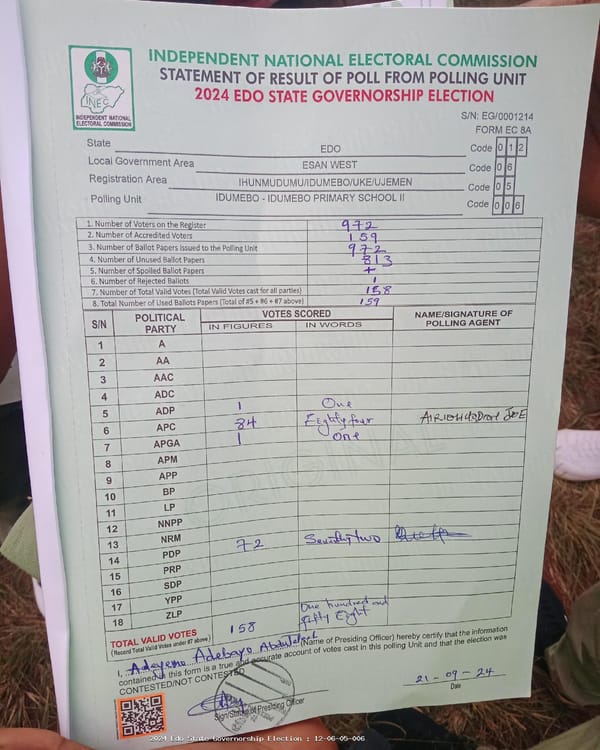 INDEPENDENT NATIONAL ELECTORAL COMMISSION
STATEMENT OF RESULT OF POLL FROM POLLING UNIT
2024 EDO STATE GOVERNORSHIP ELECTION
INEC
INDEPENDENT NATIONAL
ELECTORAL COMMISSION
S/N: EG/0001214
FORM EC 8A
State EDO Code 0 1 2
Local Government Area ESAN WEST Code 0 6
Registration Area IHUNMUDUMU/IDUMEBO/UKE/UJEMEN Code 0 5
Polling Unit IDUMEBO - IDUMEBO PRIMARY SCHOOL II Code 0 0 6
1. Number of Voters on the Register 972
2. Number of Accredited Voters 159
3. Number of Ballot Papers Issued to the Polling Unit 972
4. Number of Unused Ballot Papers 813
5. Number of Spoiled Ballot Papers
6. Number of Rejected Ballots 1
7. Number of Total Valid Votes (Total Valid Votes cast for all parties) 158
8. Total Number of Used Ballots Papers (Total of #5 + #6 + #7 above) 159
S/N POLITICAL PARTY VOTES SCORED NAME/SIGNATURE OF POLLING AGENT
IN FIGURES IN WORDS
1 A
2 AA
3 AAC
4 ADC
5 ADP 1 One
6 APC 84 Eighty four
7 APGA 1 one
8 APM
9 APP
10 BP
11 LP
12 NNPP
13 NRM
14 PDP 72 Seventy two
15 PRP
16 SDP
17 YPP
18 ZLP
TOTAL VALID VOTES 158 One hundred and
(Record Total Valid Votes under #7 above) fifty Eight
I, Adeyemo Adebayo (Name of Presiding Officer) hereby certify that the information
contained in this form is a true and accurate account of votes cast in this polling Unit and that the election was
CONTESTED/NOT CONTESTED
21-09-24
Sign/Stamp of Presiding Officer Date
2024 Edo State Governorship Election : 12-06-05-006